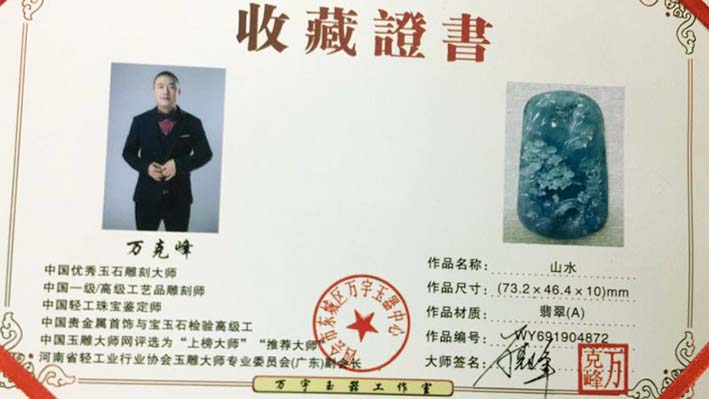 收藏證書
万克峰
中国优秀玉石雕刻大师
中国一级/高级工艺品雕刻师
中国轻工珠宝鉴定师
中国贵金属首饰与宝玉石检验高级工
中国玉雕大师网评选为“上榜大师”“推荐大师”
河南省轻工业行业协会玉雕大师专业委员会(广东)副会长
作品名称: 山水
作品尺寸: (73.2×46.4×10)mm
作品材质: 翡翠(A)
作品编号: WY691904872
大师签名:
万克峰
市东城区万宇玉器中心
万宇玉器工作室